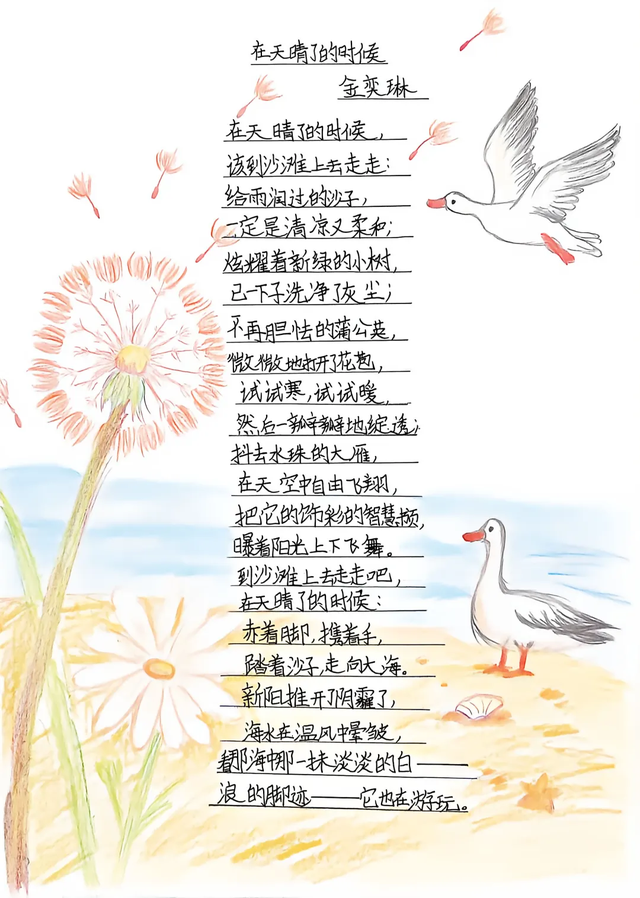 在天晴了的时候
金奕琳
在天晴了的时候，
该到沙滩上去走走：
给雨润过的沙子，
一定是清凉又柔和；
炫耀着新绿的小树，
已一下子洗净了灰尘；
不再胆怯的蒲公英，
微微地打开了花苞，
试试寒，试试暖，
然后一瓣瓣地绽透；
抖去水珠的大雁，
在天空中自由飞翔，
把它的饰彩的智慧频，
曝着阳光上下飞舞。
到沙滩上去走走吧，
在天晴了的时候：
赤着脚，携着手，
踏着沙子，走向大海。
新阳推开了阴霾了，
海水在温风中晕皱，
看那海中那一抹淡淡的白——
浪的脚迹——它也在游玩。